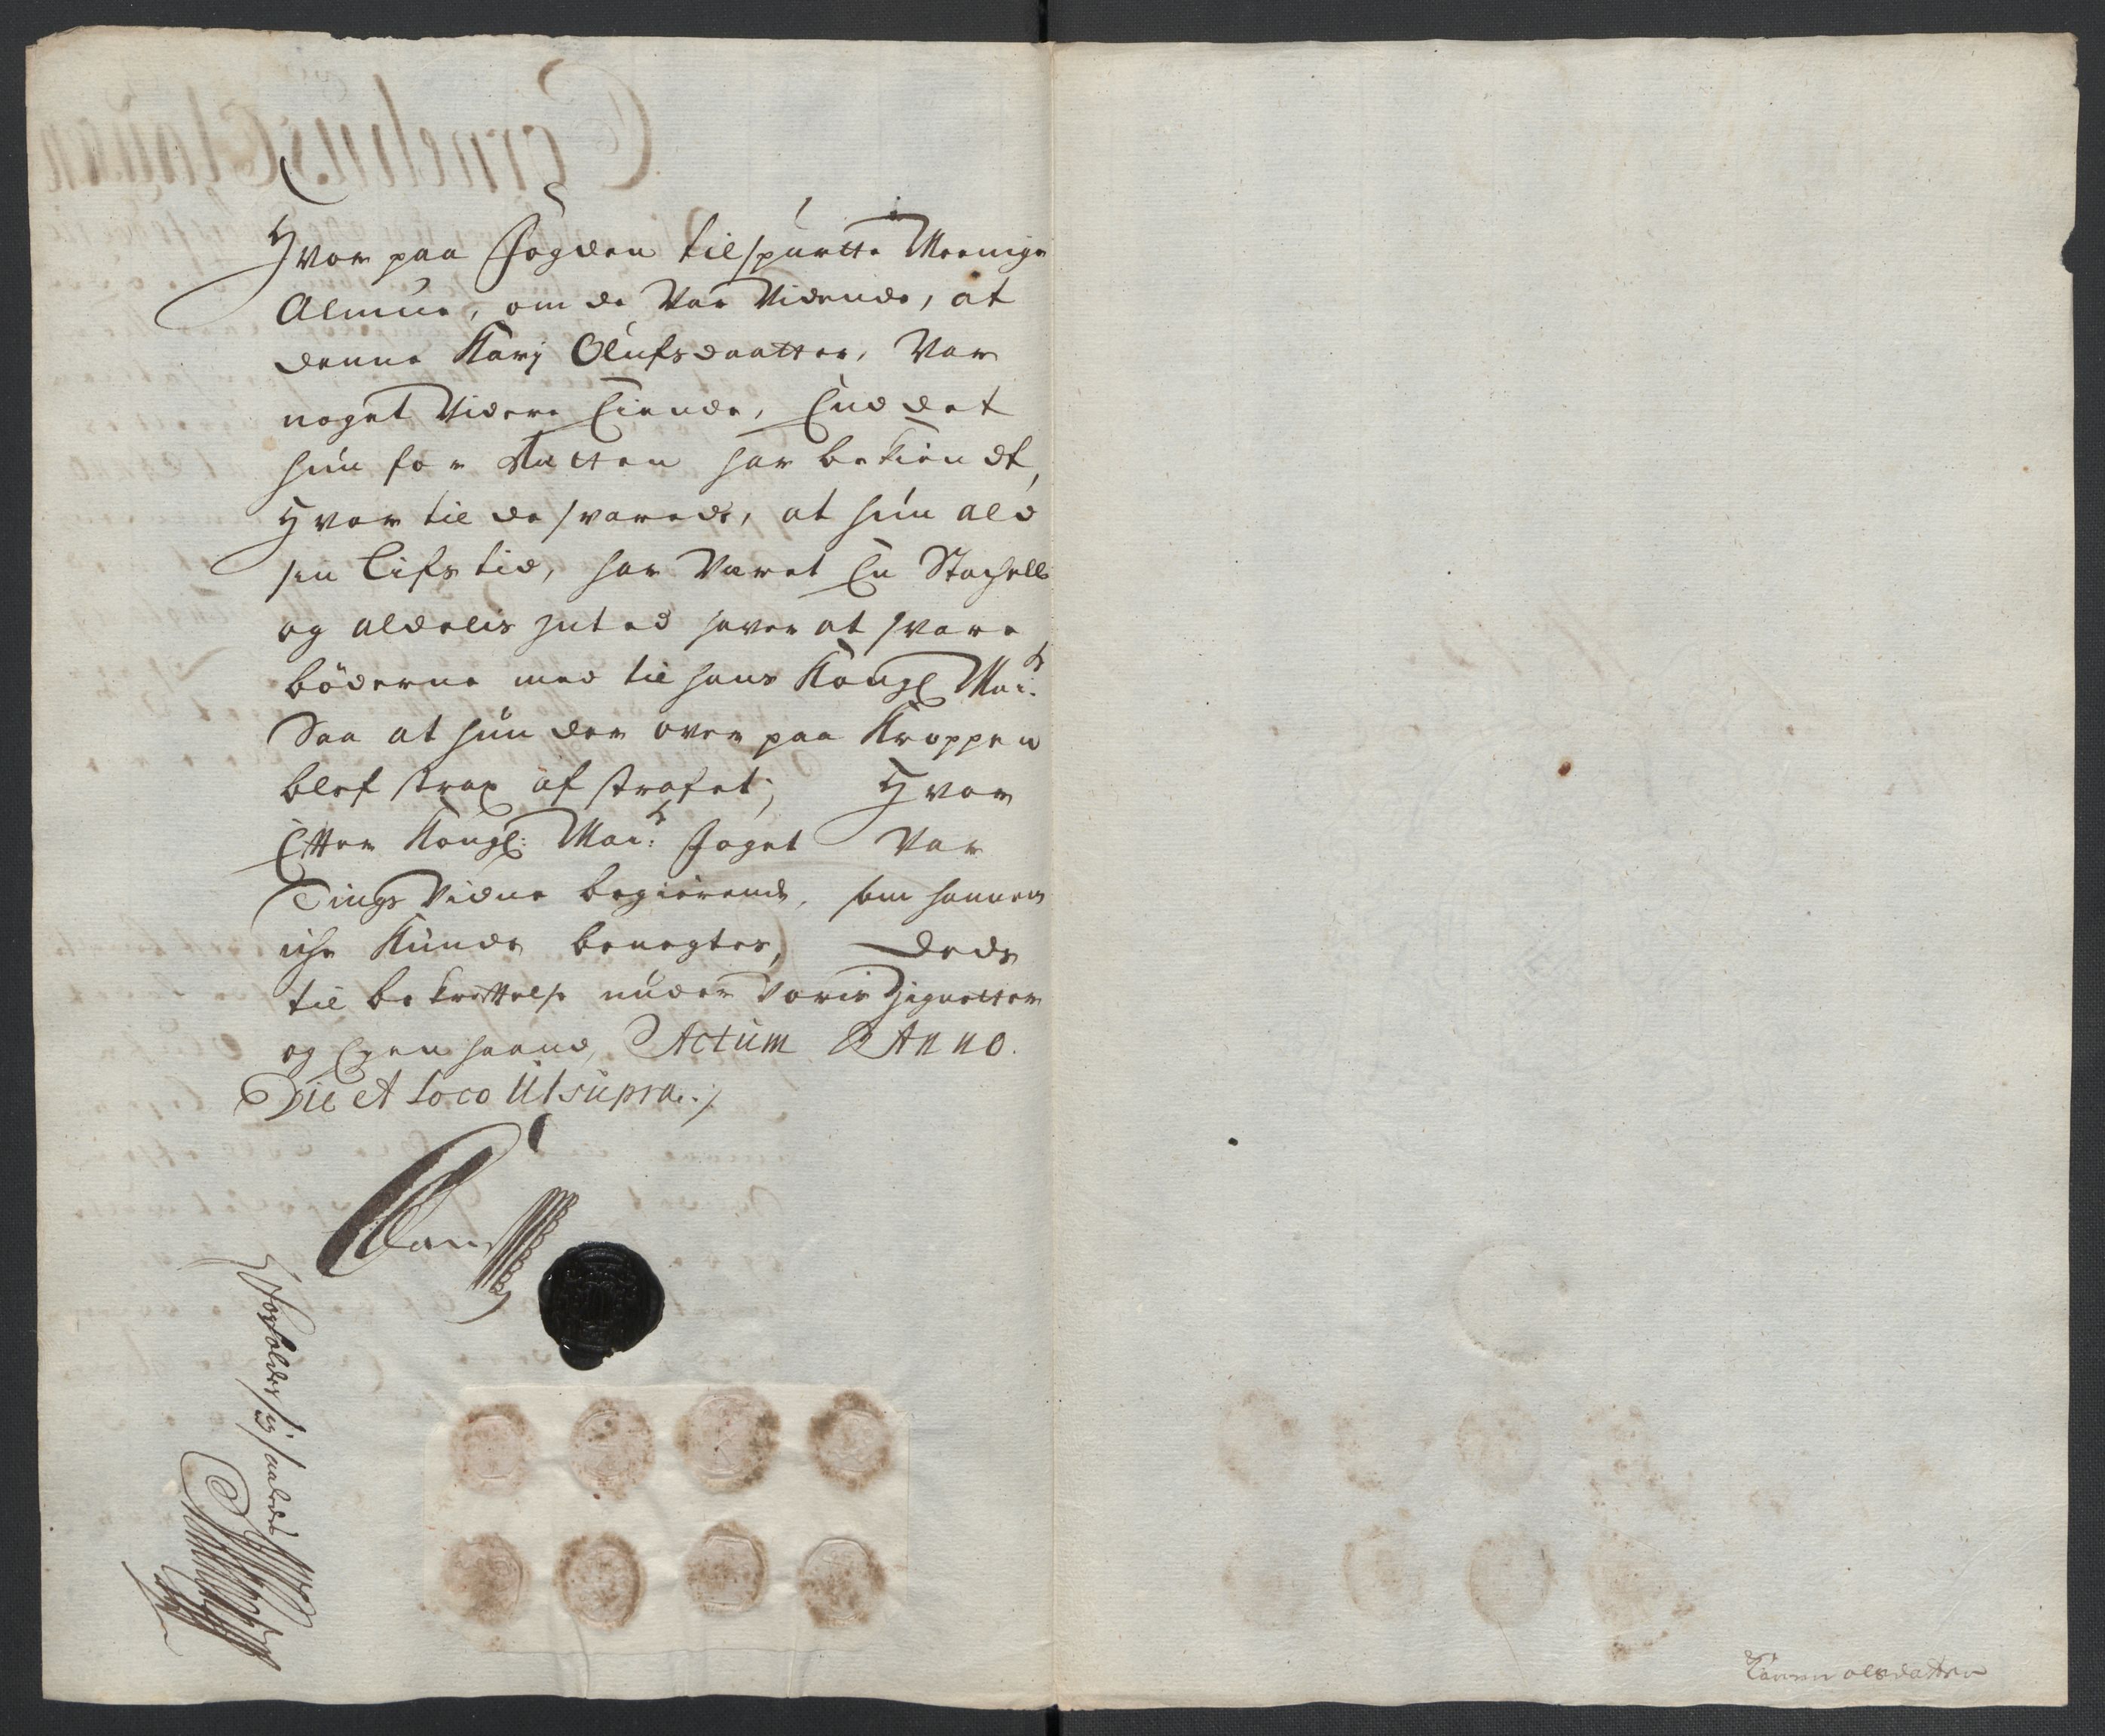 Hvor paa Fogden tilspurtte Meenige
Almue, om de Var Vidende, at
denne Karj Olufsdaatter, Var
noget Videre Eiende, End det
hun for Retten har bekiendt,
Hvor til de svarede, at hun ald
sin Lifs tid, har Veret En Stachell
og aldelis Intet haver at svare
böderne med til hans Kongl Mai:ts
Saa at hun der over paa Kroppen
blef strax afstrafet; Hvor
Efter Kongl: Mai:ts foget Var
Tings Vidne begierende, som hannem
iche Kunde benegtes, Dette
til bekreftelse under Voris Zignetter
og Egen haand, Actum Anno
Die et Loco Ut supra./
Forholder sig saaledes
Karren olsdatter